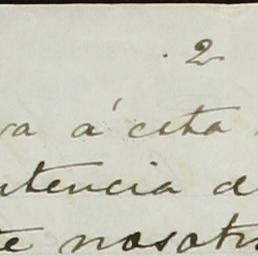 2
va á esta
tencia d
te nosotr